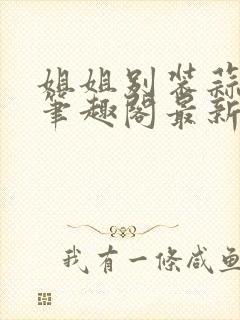 姐姐别装蒜
筆趣閣最新
我有一條咸鱼